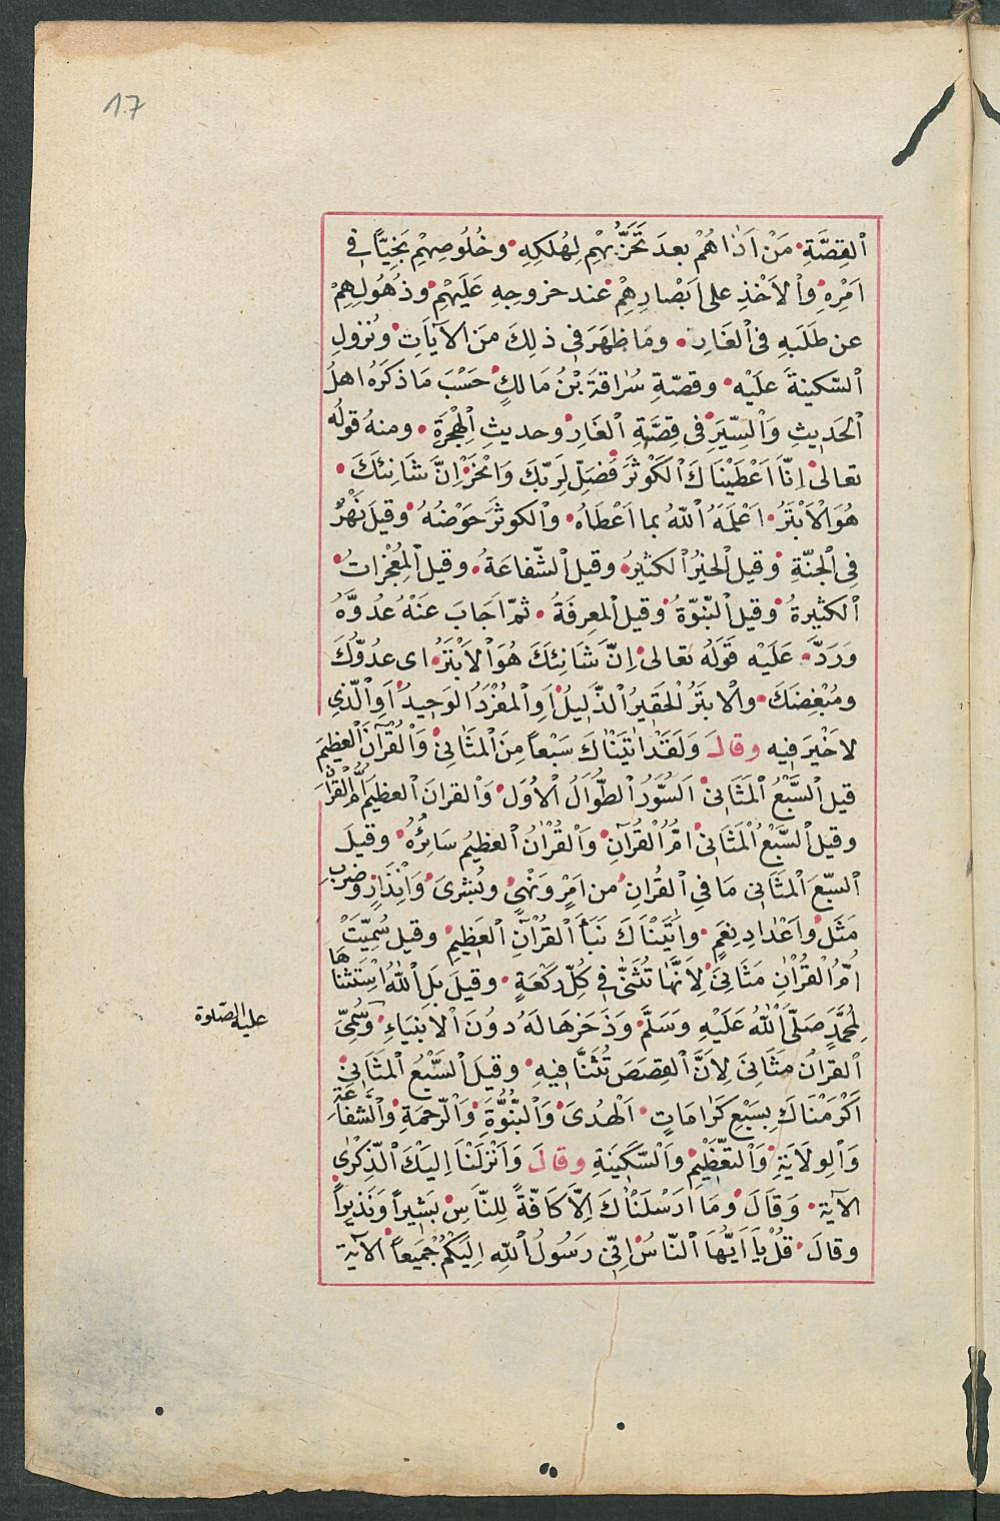 17
ٱلقِصَّةِ مَنْ اَذَاهُمْ بعدَ تَحَزُّبِهِم لِهُلكِهِ وخُلُوصِهِمْ نَجِيّاً فى
اَمْرِهِ وٱلاَخْذِ على اَبْصارِهِمْ عند خروجِهِ عَلَيهِمْ وذُهُولِهِمْ
عن طَلَبهِ فى ٱلغَارِ ومَا ظهَرَ فى ذلِكَ مِنَ الآيَاتِ ونُزولِ
ٱلسّكينةِ علَيْهِ وقصّةِ سُرَاقةَ بْنُ مَالكٍ حَسْبَ مَا ذكَرَهُ اهلُ
ٱلحَديثِ وَٱلسِّيَرِ فى قِصَّةِ ٱلغَارِ وحديثِ ٱلهِجْرَةِ ومنهُ قولُه
تعالى اِنَّا اَعْطَيْنَاكَ ٱلكَوْثَرَ فَصَلِّ لِرَبّكَ وَانْحَرْ اِنَّ شَانِئَكَ
هُوَ ٱلاَبْتَرُ اَعْلَمَهُ ٱللهُ بما اَعْطَاهُ وٱلكوثَرَ حَوْضُهُ وقيلَ نَهْرٌ
فِى ٱلجَنّةِ وقيل ٱلخيْرُ ٱلكثيرُ وقيل ٱلشّفاعَةُ وقيل ٱلمُعْجْزاتُ
ٱلكثيرةُ وقيل ٱلنّبُوّةُ وقيل ٱلمعرِفَةُ ثمّ اَجَابَ عَنْهُ عدُوَّهُ
وَرَدَّ عَلَيْه قَولَهُ تعالى اِنَّ شَانِئكَ هُوَ ٱلاَبْتَرُ اى عدُوّكَ
ومُبْغِضَكَ وٱلابتَرُ ٱلحَقيرُ ٱلذَّلِيلُ اَوِ ٱلمُفْرَدُ ٱلوَحِيدُ اَوِ ٱلّذِي
لاخَيْرَ فيه وقالَ وَلَقَدْ اتَيْنَاكَ سَبْعاً مِنَ ٱلمَثَانِى وَٱلْقُرْآنَ ٱلعَظيمَ
قيل ٱلسَّبْعُ ٱلمَثَانِى ٱلسُّوَرُ ٱلطُّوَالُ ٱلاُوَل وَٱلقرانَ ٱلعظيمَ اُمُّ ٱلقرْآن
وقيل ٱلسَّبْعُ ٱلمَثَانِى امُّ ٱلْقُرْآنِ وَٱلقُرْانُ ٱلعظيمُ سَائِرُهُ وقيلَ
ٱلسّبْعَ ٱلمثَانى مَا فِي ٱلقُرانِ من اَمْرٍ وَنَهْىٍ وبُشرىَ وَاِنْذَارٍ وضربِ
مَثَل وَاَعْدَادِ نِعَمٍ واتَيْنَاكَ نَبَأَ ٱلقُرْآنِ ٱلعَظِيمِ وقيل سُمِّيَتْ
اُمُّ ٱلْقُرْانِ مَثَانِىَ لاَنَّهَا تُثَنَّى فى كُلّ رَكعَةٍ وقيلَ بَلِ ٱللهُ اسْتَثْنَاهَا
لِمُحمَّدٍ صَلَّى ٱللهُ عَلَيْهِ وَسَلَّمَ وَذَخَرَهَا لَهُ دُونَ ٱلانبيَاءِ وسُمِّىَ
عليه الصّلوة
ٱلقرانُ مَثَانِىَ لاَنَّ ٱلقِصَصَ تُثَنَّا فيهِ وقيلَ ٱلسَّبْعُ ٱلمثَانِى
اَكْرَمْنَاكَ بِسَبْعِ كَرَامَاتٍ اَلْهُدىَ وَٱلنُّبُوَّةِ وَٱلرّحمَةِ وَٱلشفَاعَةِ
وَٱلوِلاَيَةِ وَٱلتّعْظِيْمِ وَٱلسَّكِينَةِ وقالَ وَاَنْزَلنَا اِليكَ ٱلذّكرَ
الآيَة وَقَالَ وَمَا اَرْسَلنَاكَ اِلاَّ كَافّةً لِلنَّاسِ بَشِيراً وَنَذيراً
وقالَ قُلْ يَا اَيّهَا ٱلنّاسُ اِنّى رَسُولُ ٱللهِ اِلَيْكُمْ جَميعاً الآيَة